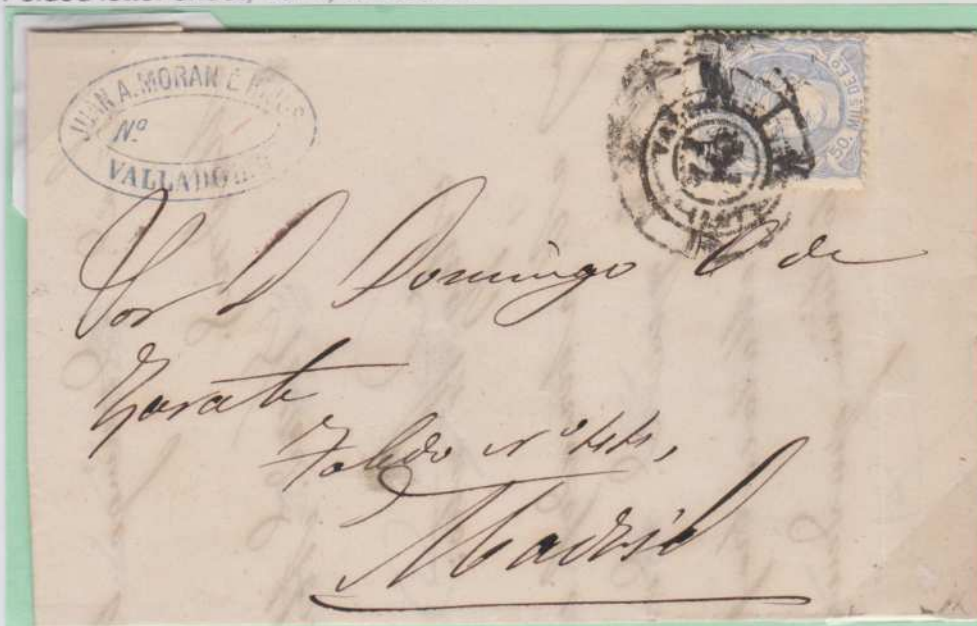 JUAN A. MORAN É HIJOS
Nº
VALLADOLID
50. MILS DE Eº
Sor D Domingo C de
Zarate
Toledo nº 44,
Madrid